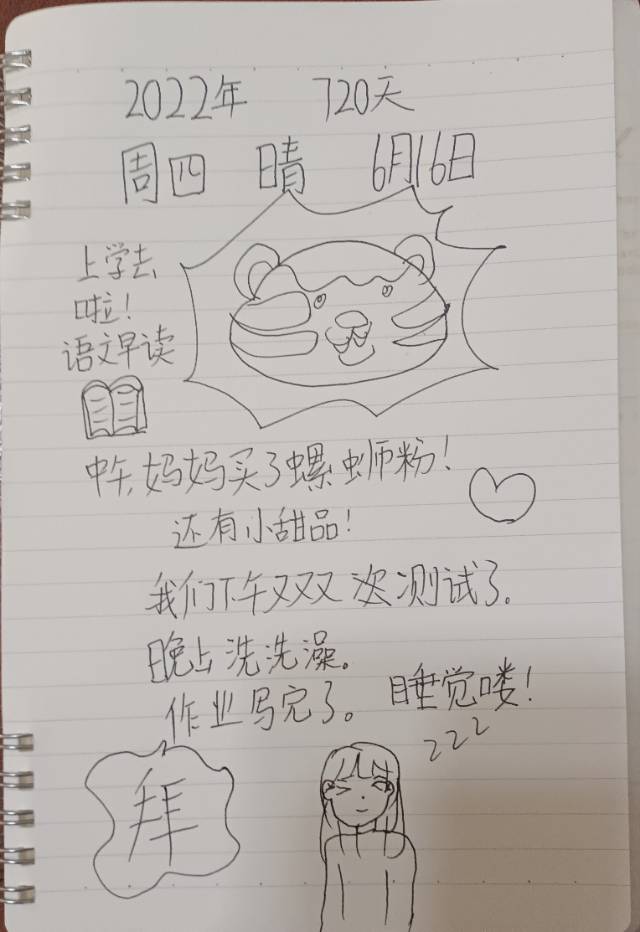 2022年 720天
周四 晴 6月16日
上学去
啦！
语文早读
中午,妈妈买了螺蛳粉！
还有小甜品！
我们下午又双叒次测试了。
晚上洗洗澡。
作业写完了。
睡觉喽！
zzz
拜